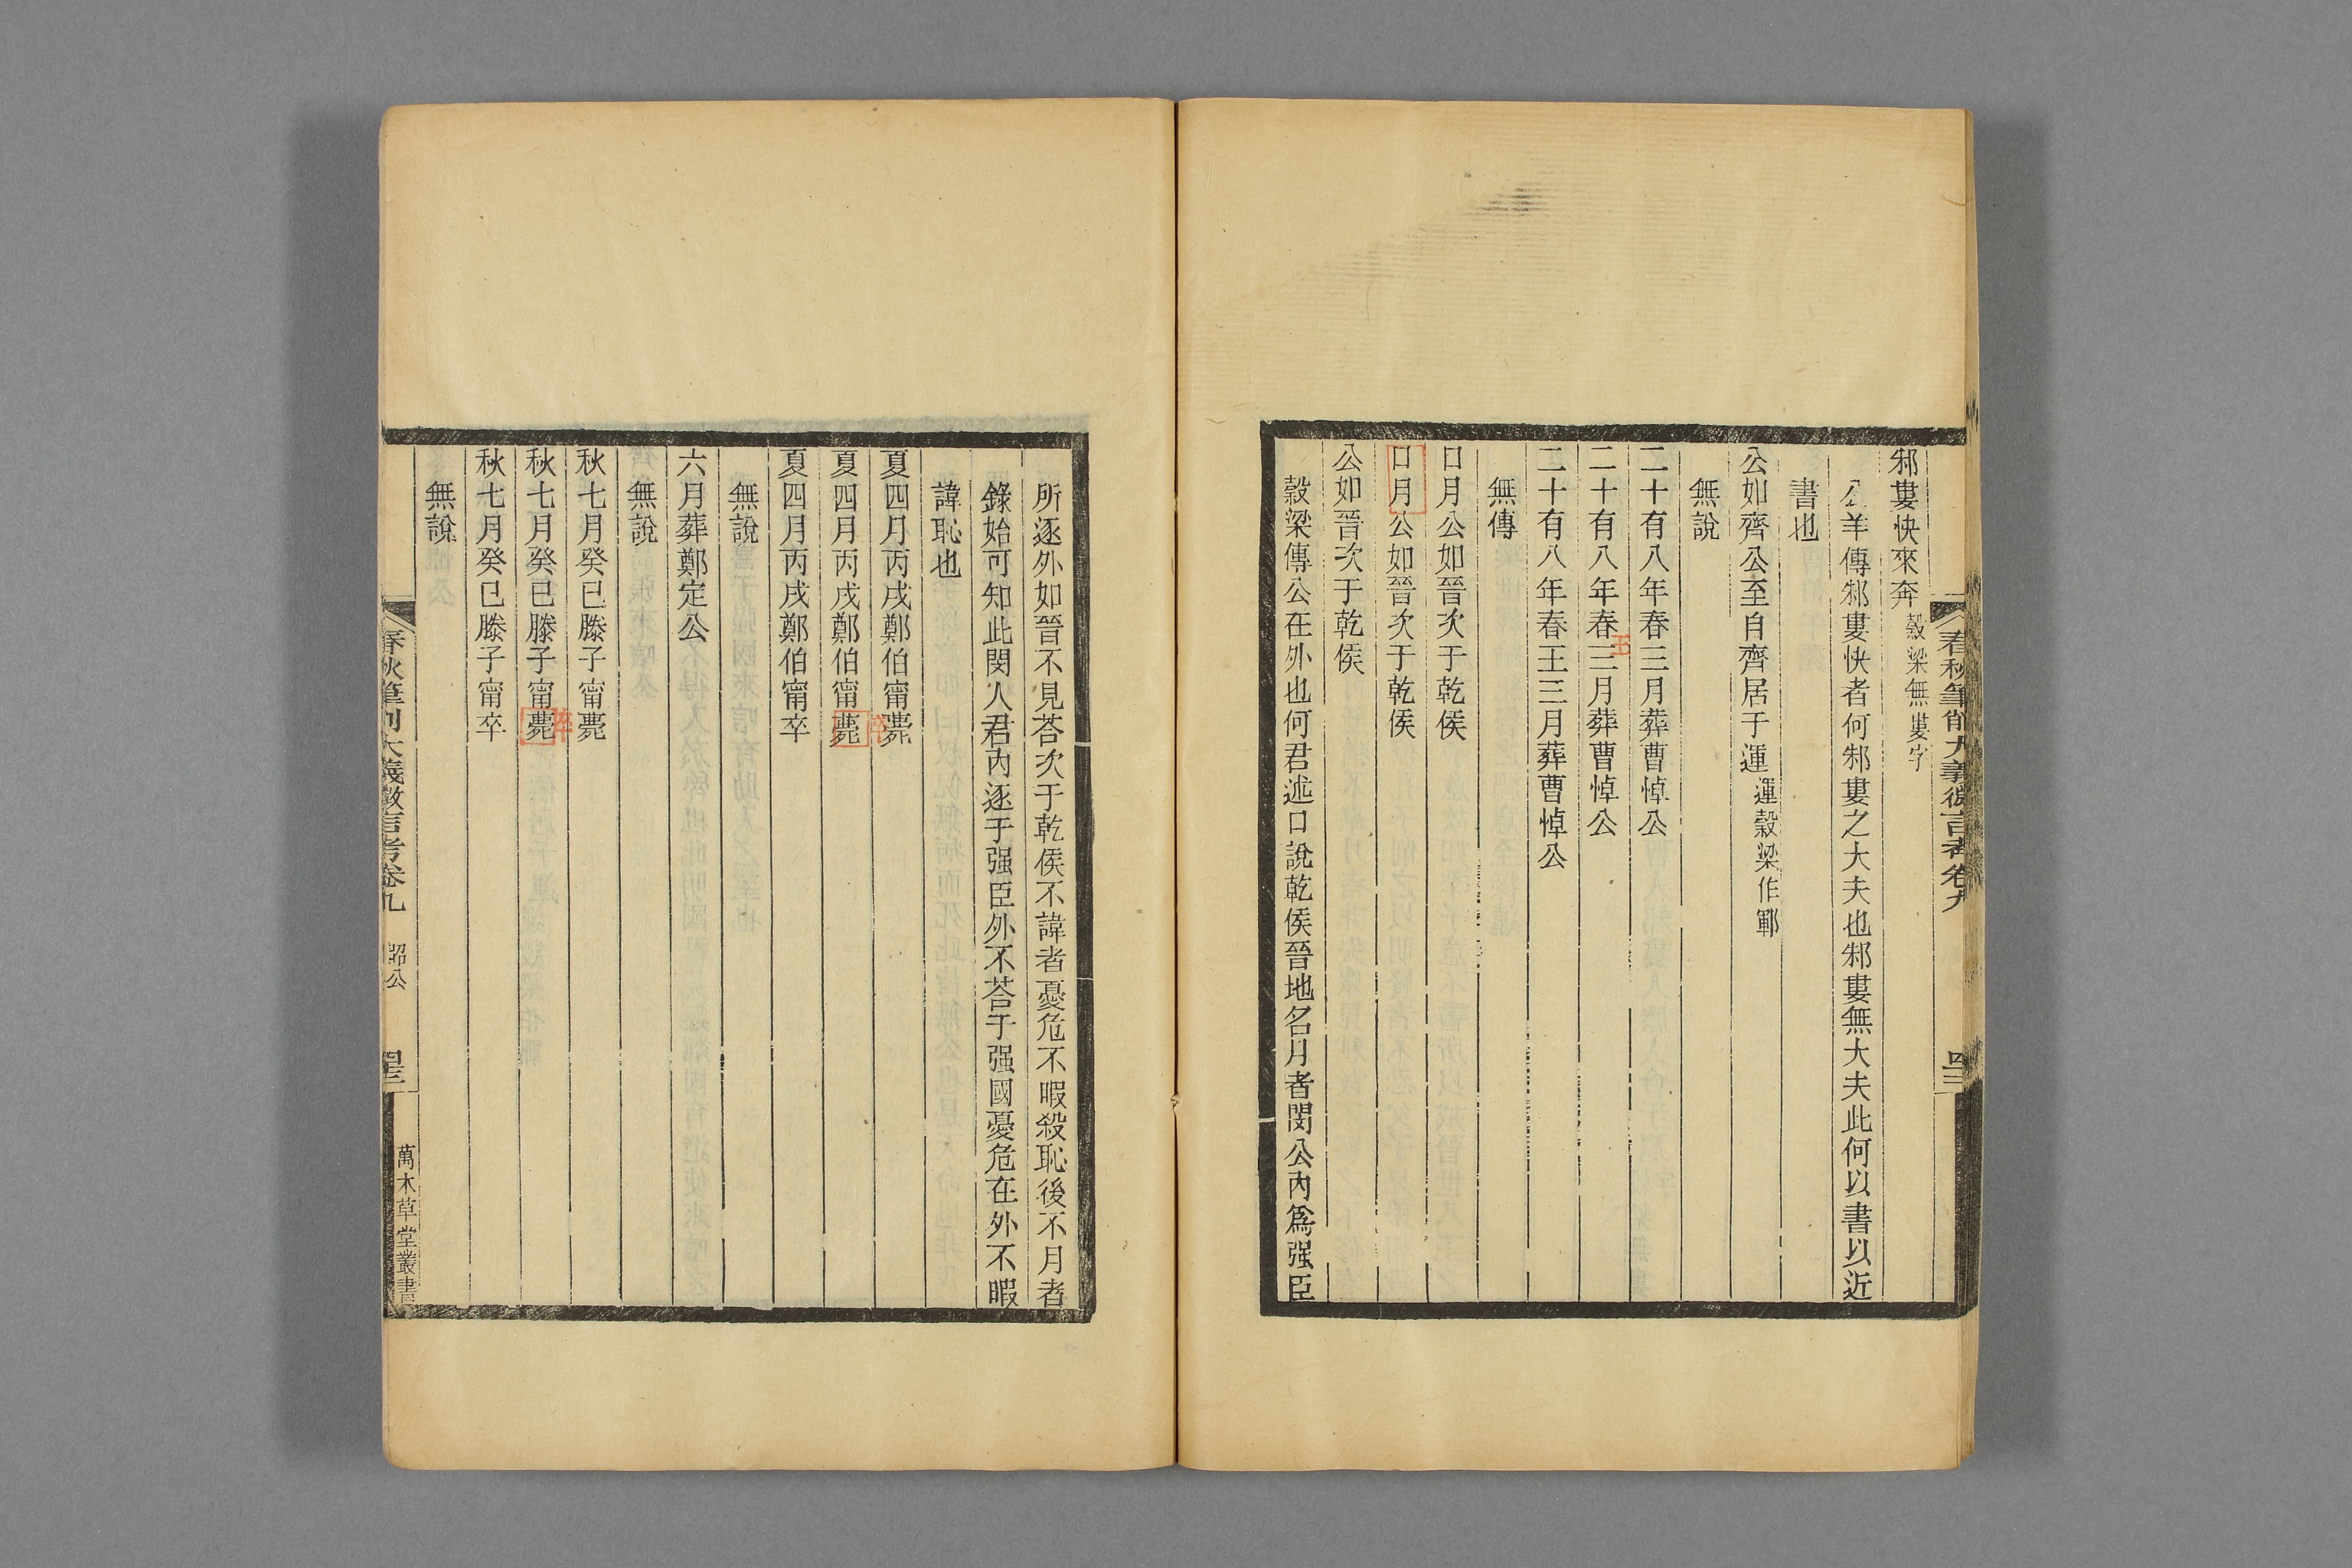 春秋筆削大義微言考卷九
四三
邾婁快來奔穀梁無婁字
公羊傳邾婁快者何邾婁之大夫也邾婁無大夫此何以書以近
書也
公如齊公至自齊居于運運穀梁作鄆
無說
二十有八年春三月葬曹悼公
二十有八年春王三月葬曹悼公
二十有八年春王三月葬曹悼公
無傳
口月公如晉次于乾侯
口月公如晉次于乾侯
公如晉次于乾侯
穀梁傳公在外也何君述口說乾侯晉地名月者閔公內爲强臣
所逐外如晉不見荅次于乾侯不諱者憂危不暇殺恥後不月者
錄始可知此閔人君內逐于强臣外不荅于强國憂危在外不暇
諱恥也
夏四月丙戌鄭伯甯薨
夏四月丙戌鄭伯甯薨卒
夏四月丙戌鄭伯甯卒
無說
六月葬鄭定公
無說
秋七月癸巳滕子甯薨
秋七月癸巳滕子甯薨卒
秋七月癸巳滕子甯卒
無說
春秋筆削大義微言考卷九
昭公
四三
萬木草堂叢書